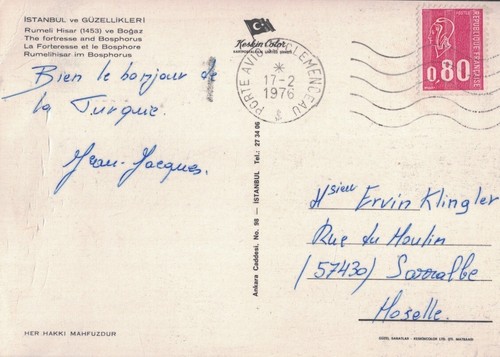 İSTANBUL ve GÜZELLİKLERİ
Rumeli Hisar (1453) ve Boğaz
The fortresse and Bosphorus
La Forteresse et le Bosphore
Rumelihisar im Bosphorus
Bien le bonjour de
la Turquie.
Jean-Jacques.
HER HAKKI MAHFUZDUR
Keskin Color
Ankara Caddesi, No. 98 — İSTANBUL Tel.: 27 34 06
PORTE AVIONS CLEMENCEAU
17-2
1976
REPUBLIQUE FRANÇAISE
0,80
Msieu Ervin Klingler
Rue du Moulin
(57430) Sarralbe
Moselle.